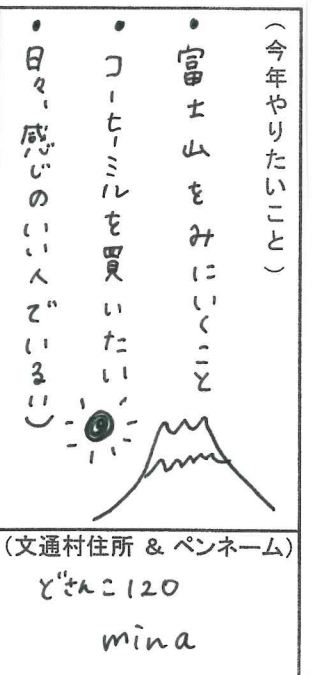 （今年やりたいこと）
・富士山をみにいくこと
・コーヒーミルを買いたい
・日々、感じのいい人でいる！！）
（文通村住所 & ペンネーム）
どさんこ120
mina